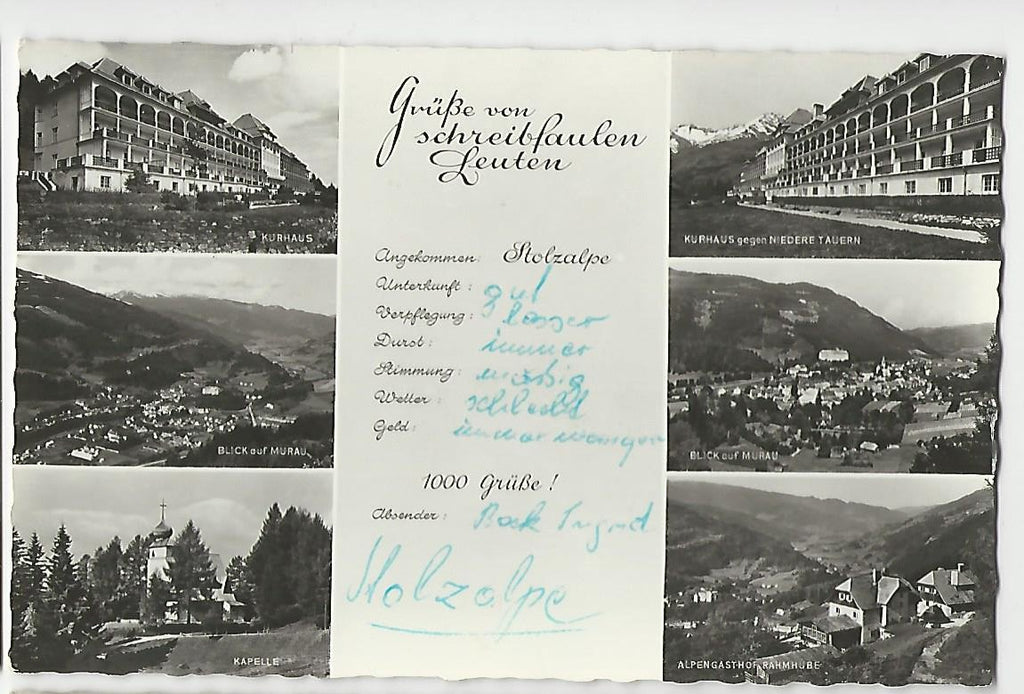 Grüße von
schreibfaulen
Leuten
KURHAUS
KURHAUS gegen NIEDERE TAUERN
Angekommen: Stolzalpe
Unterkunft: gut
Verpflegung: besser
Durst: immer
Stimmung: mäßig
Wetter: schlecht
Geld: immer weniger
BLICK auf MURAU
BLICK auf MURAU
1000 Grüße!
Absender: Ingrid
Stolzalpe
KAPELLE
ALPENGASTHOF RAHMHUBE